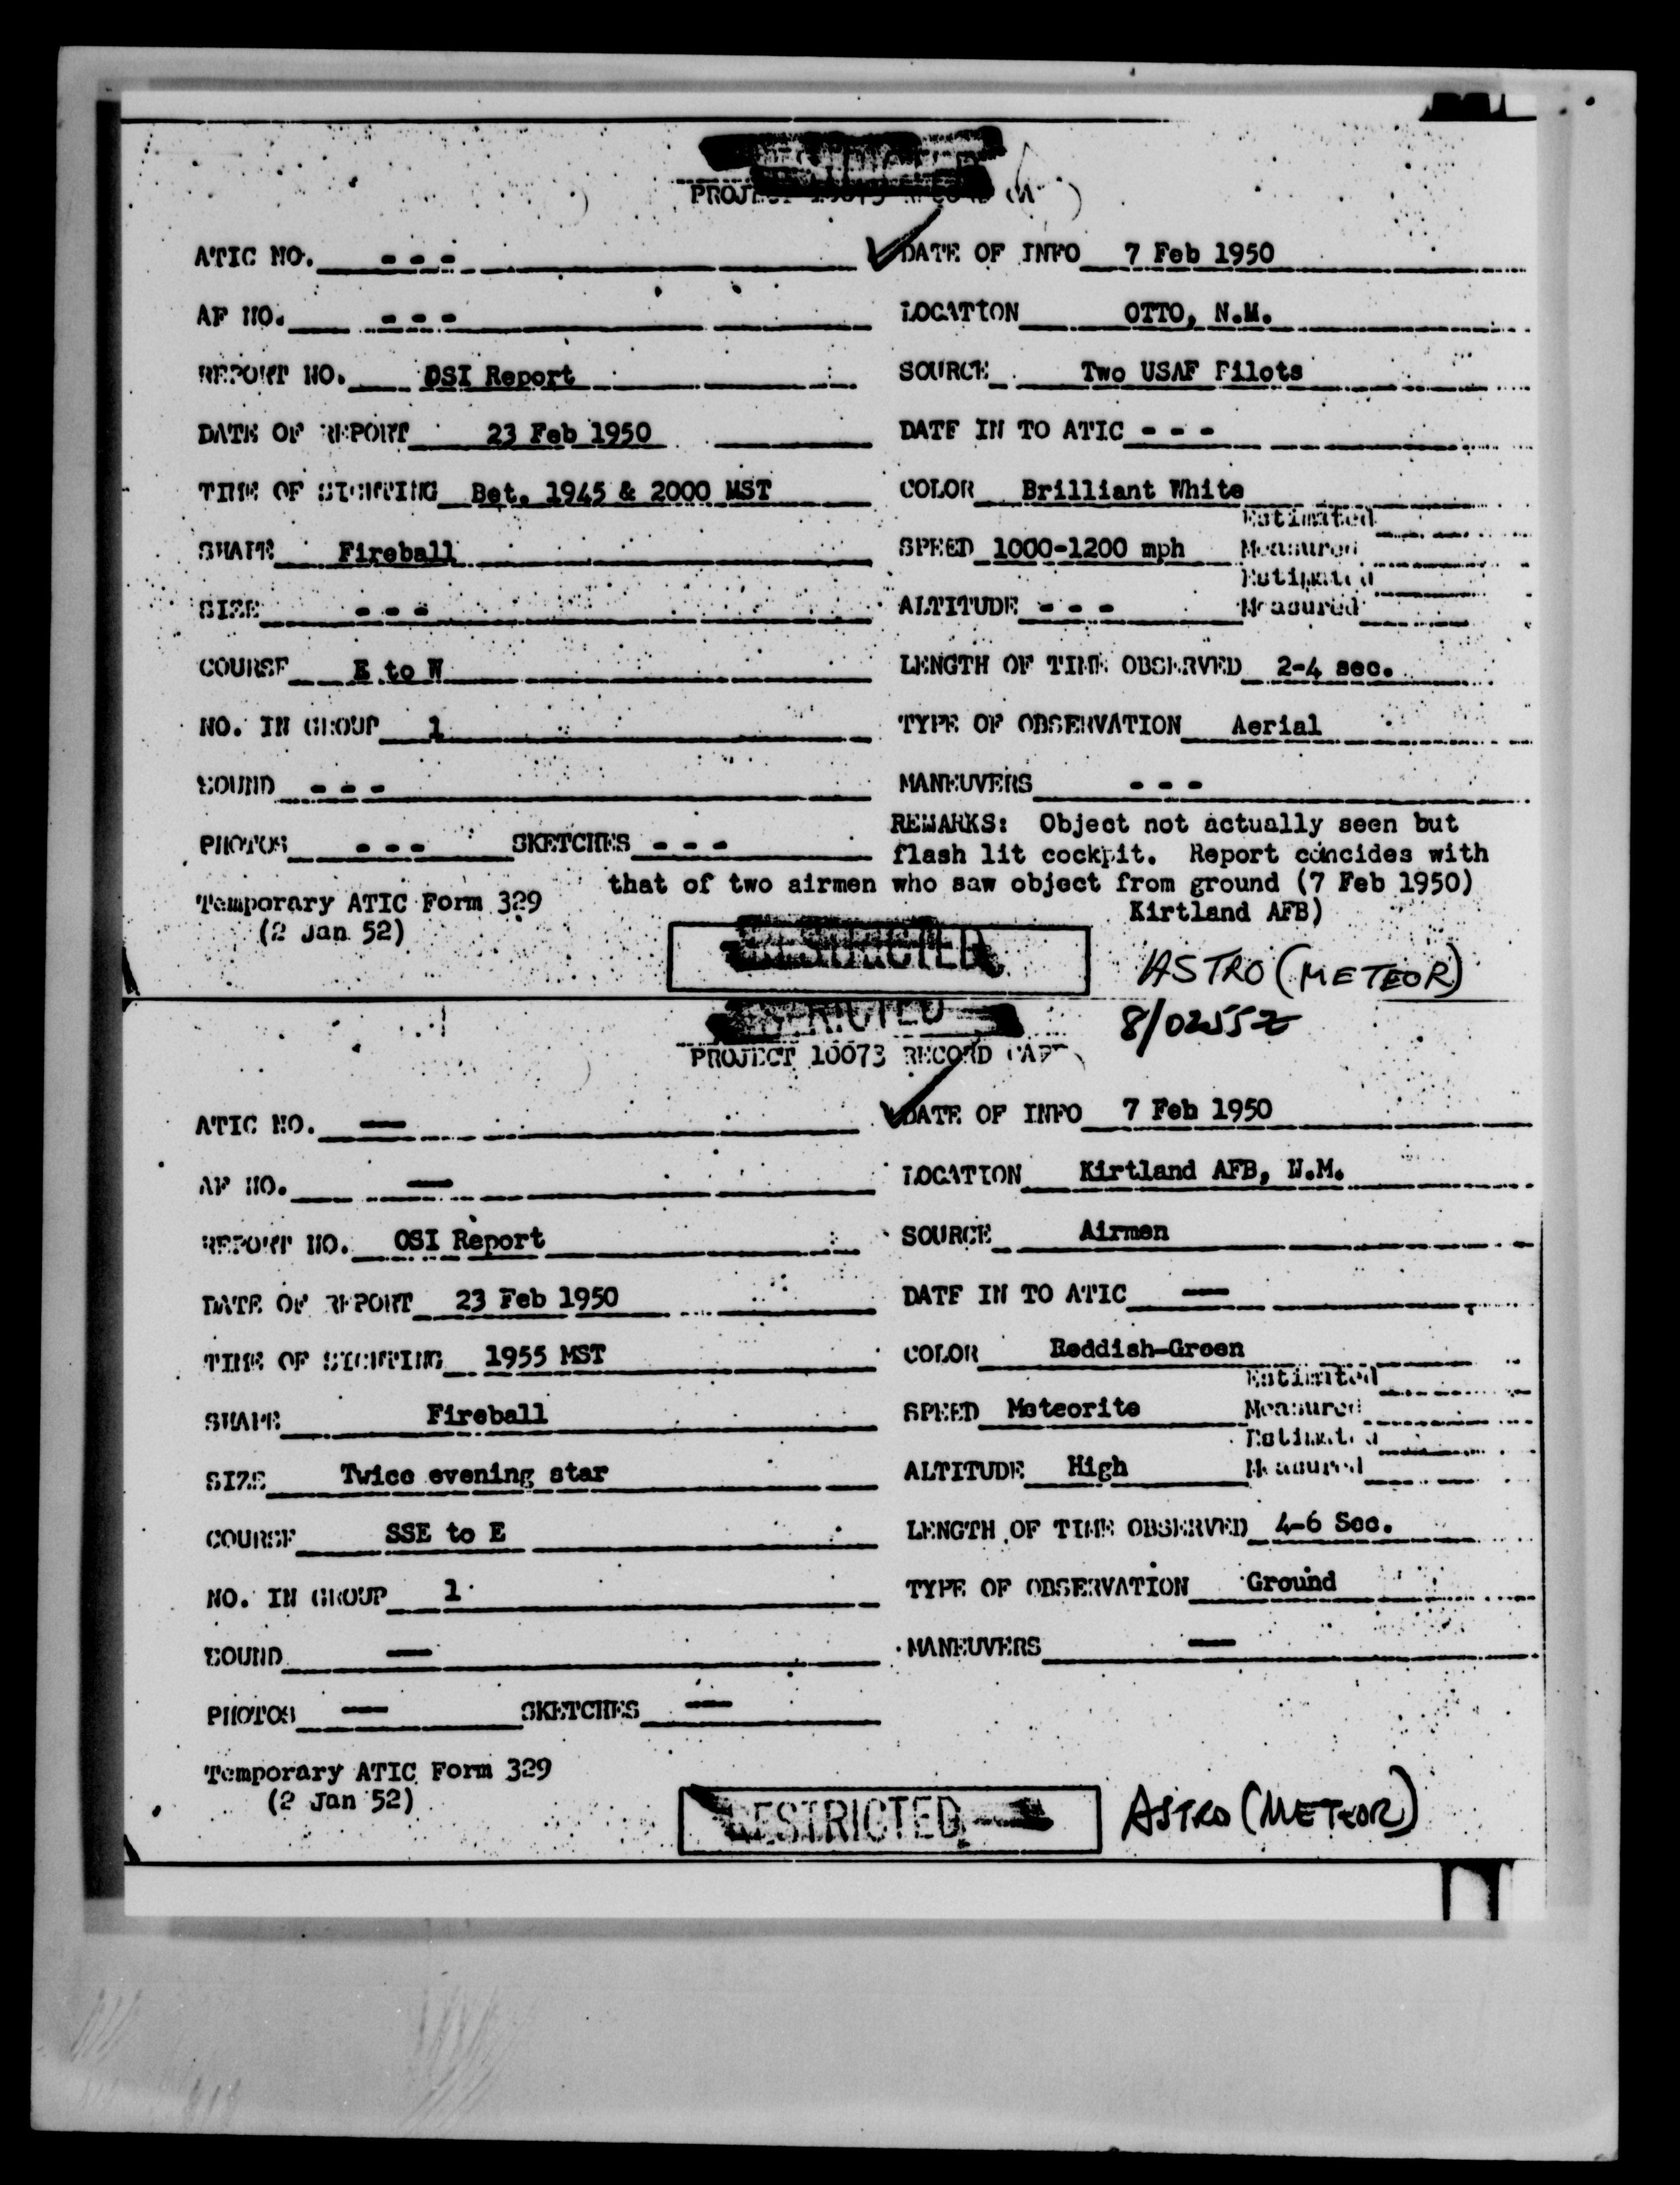 PROJECT 10073
ATIC NO. - - - DATE OF INFO 7 Feb 1950
AF NO. - - - LOCATION OTTO, N.M.
REPORT NO. OSI Report SOURCE Two USAF Pilots
DATE OF REPORT 23 Feb 1950 DATE IN TO ATIC - - -
TIME OF SIGHTING Bet. 1945 & 2000 MST COLOR Brilliant White
Estimated
SHAPE Fireball SPEED 1000-1200 mph Measured
Estimated
SIZE - - - ALTITUDE - - - Measured
COURSE E to W LENGTH OF TIME OBSERVED 2-4 sec.
NO. IN GROUP 1 TYPE OF OBSERVATION Aerial
SOUND - - - MANEUVERS - - -
REMARKS: Object not actually seen but
PHOTOS - - - SKETCHES - - - flash lit cockpit. Report concides with
that of two airmen who saw object from ground (7 Feb 1950)
Temporary ATIC Form 329 Kirtland AFB)
(2 Jan 52)
RESTRICTED
ASTRO (METEOR)
8/0255Z
RESTRICTED
PROJECT 10073 RECORD CARD
ATIC NO. — DATE OF INFO 7 Feb 1950
AF NO. — LOCATION Kirtland AFB, N.M.
REPORT NO. OSI Report SOURCE Airmen
DATE OF REPORT 23 Feb 1950 DATE IN TO ATIC —
TIME OF SIGHTING 1955 MST COLOR Reddish-Green
Estimated
SHAPE Fireball SPEED Meteorite Measured
Estimated
SIZE Twice evening star ALTITUDE High Measured
COURSE SSE to E LENGTH OF TIME OBSERVED 4-6 Sec.
NO. IN GROUP 1 TYPE OF OBSERVATION Ground
SOUND — MANEUVERS —
PHOTOS — SKETCHES —
Temporary ATIC Form 329
(2 Jan 52)
RESTRICTED
ASTRO (METEOR)